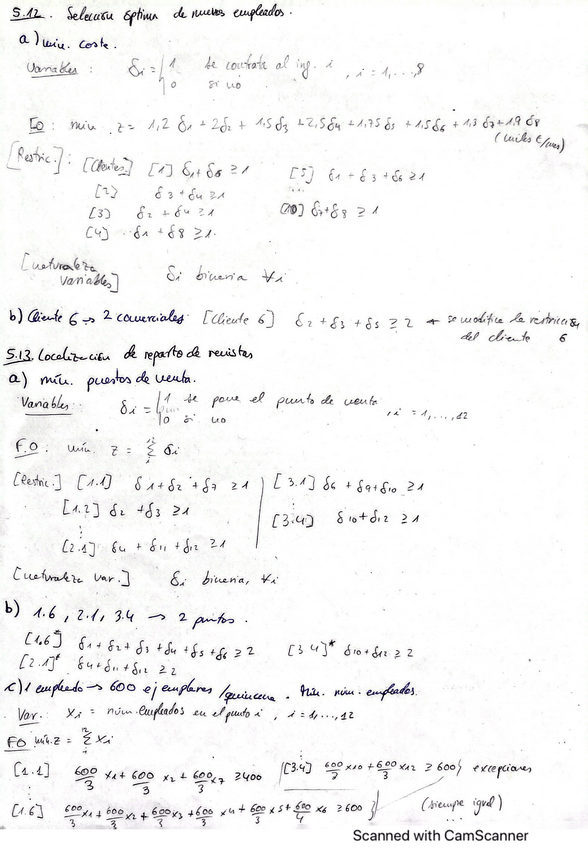 5.12. Selección óptima de nuevos empleados.
a) min. coste.
Variables: δi = { 1 se contrata al ing. i , i = 1,...,8
0 si no
FO: min. z = 1,2 δ1 + 2δ2 + 1,5 δ3 + 2,5 δ4 + 1,75 δ5 + 1,5 δ6 + 1,3 δ7 + 1,9 δ8
(miles €/mes)
[Restric.]: [Clientes] [1] δ1 + δ6 ≥ 1 [5] δ1 + δ3 + δ6 ≥ 1
[2] δ3 + δ4 ≥ 1 ...
[3] δ2 + δ4 ≥ 1 [10] δ7 + δ8 ≥ 1
[4] δ1 + δ8 ≥ 1.
[naturaleza variables] δi binaria ∀i
b) Cliente 6 → 2 comerciales [Cliente 6] δ2 + δ3 + δ5 ≥ 2 ← se modifica la restricción
del cliente 6
5.13. Localización de reparto de revistas
a) mín. puestos de venta.
Variables: δi = { 1 se pone el punto de venta , i = 1,...,12
0 si no
F.O: min. z = Σ δi
[Restric.] [1.1] δ1 + δ2 + δ7 ≥ 1 [3.1] δ6 + δ9 + δ10 ≥ 1
[1.2] δ2 + δ3 ≥ 1 ⋮
⋮ [3.4] δ10 + δ12 ≥ 1
[2.1] δ4 + δ11 + δ12 ≥ 1
[naturaleza var.] δi binaria, ∀i
b) 1.6, 2.1, 3.4 → 2 puntos.
[1.6]* δ1 + δ2 + δ3 + δ4 + δ5 + δ6 ≥ 2 [3.4]* δ10 + δ12 ≥ 2
[2.1]* δ4 + δ11 + δ12 ≥ 2
c) 1 empleado → 600 ejemplares/quincena. Min. núm. empleados.
Var. xi = núm. empleados en el punto i, i = 1,...,12
FO min. z = Σ xi
[1.1] 600/3 x1 + 600/3 x2 + 600/3 x7 ≥ 400 [3.4] 600/3 x10 + 600/3 x12 ≥ 600 } excepciones
⋮
[1.6] 600/3 x1 + 600/3 x2 + 600/3 x3 + 600/3 x4 + 600/3 x5 + 600/4 x6 ≥ 600 } (siempre igual)
Scanned with CamScanner